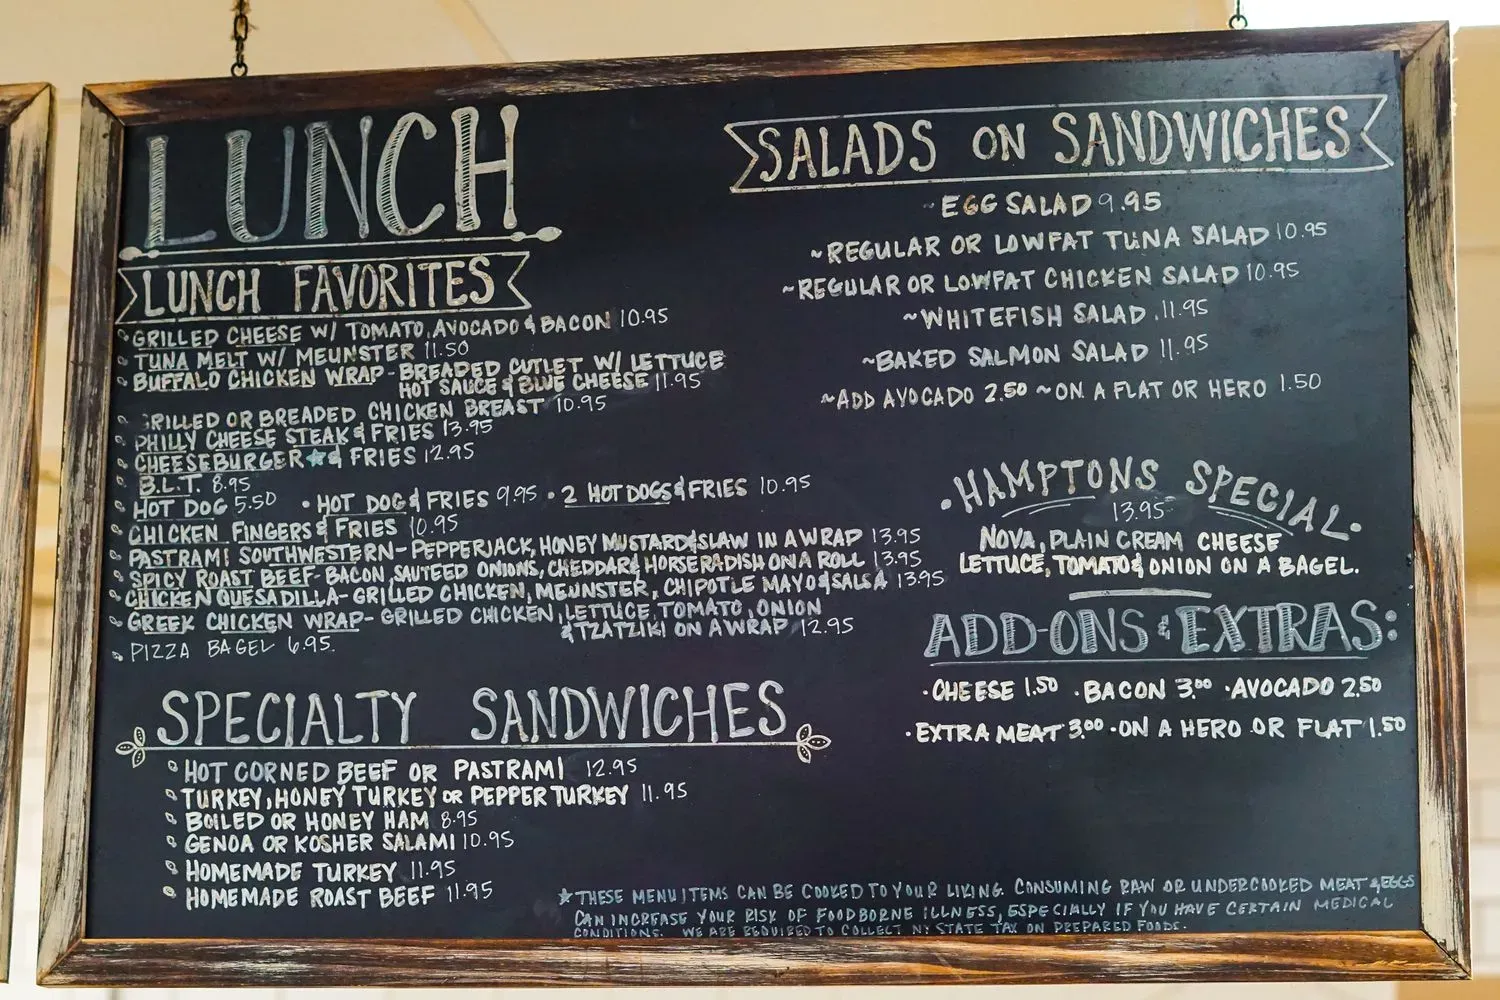 LUNCH
LUNCH FAVORITES
GRILLED CHEESE W/ TOMATO, AVOCADO & BACON 10.95
TUNA MELT W/ MEUNSTER 11.50
BUFFALO CHICKEN WRAP - BREADED CUTLET W/ LETTUCE
HOT SAUCE & BLUE CHEESE 11.95
GRILLED OR BREADED CHICKEN BREAST 10.95
PHILLY CHEESE STEAK & FRIES 13.95
CHEESEBURGER★& FRIES 12.95
B.L.T. 8.95
HOT DOG 5.50 • HOT DOG & FRIES 9.95 • 2 HOT DOGS & FRIES 10.95
CHICKEN FINGERS & FRIES 10.95
PASTRAMI SOUTHWESTERN - PEPPERJACK, HONEY MUSTARD & SLAW IN A WRAP 13.95
SPICY ROAST BEEF - BACON, SAUTEED ONIONS, CHEDDAR & HORSERADISH ON A ROLL 13.95
CHICKEN QUESADILLA - GRILLED CHICKEN, MEUNSTER, CHIPOTLE MAYO & SALSA 13.95
GREEK CHICKEN WRAP - GRILLED CHICKEN, LETTUCE, TOMATO, ONION
& TZATZIKI ON A WRAP 12.95
PIZZA BAGEL 6.95.
SPECIALTY SANDWICHES
HOT CORNED BEEF OR PASTRAMI 12.95
TURKEY, HONEY TURKEY OR PEPPER TURKEY 11.95
BOILED OR HONEY HAM 8.95
GENOA OR KOSHER SALAMI 10.95
HOMEMADE TURKEY 11.95
HOMEMADE ROAST BEEF 11.95
SALADS ON SANDWICHES
~EGG SALAD 9.95
~REGULAR OR LOWFAT TUNA SALAD 10.95
~REGULAR OR LOWFAT CHICKEN SALAD 10.95
~WHITEFISH SALAD 11.95
~BAKED SALMON SALAD 11.95
~ADD AVOCADO 2.50 ~ON A FLAT OR HERO 1.50
•HAMPTONS SPECIAL•
13.95
NOVA, PLAIN CREAM CHEESE
LETTUCE, TOMATO & ONION ON A BAGEL.
ADD-ONS & EXTRAS:
•CHEESE 1.50 •BACON 3.00 •AVOCADO 2.50
•EXTRA MEAT 3.00 •ON A HERO OR FLAT 1.50
★THESE MENU ITEMS CAN BE COOKED TO YOUR LIKING. CONSUMING RAW OR UNDERCOOKED MEAT & EGGS
CAN INCREASE YOUR RISK OF FOODBORNE ILLNESS, ESPECIALLY IF YOU HAVE CERTAIN MEDICAL
CONDITIONS. WE ARE REQUIRED TO COLLECT NY STATE TAX ON PREPARED FOODS.